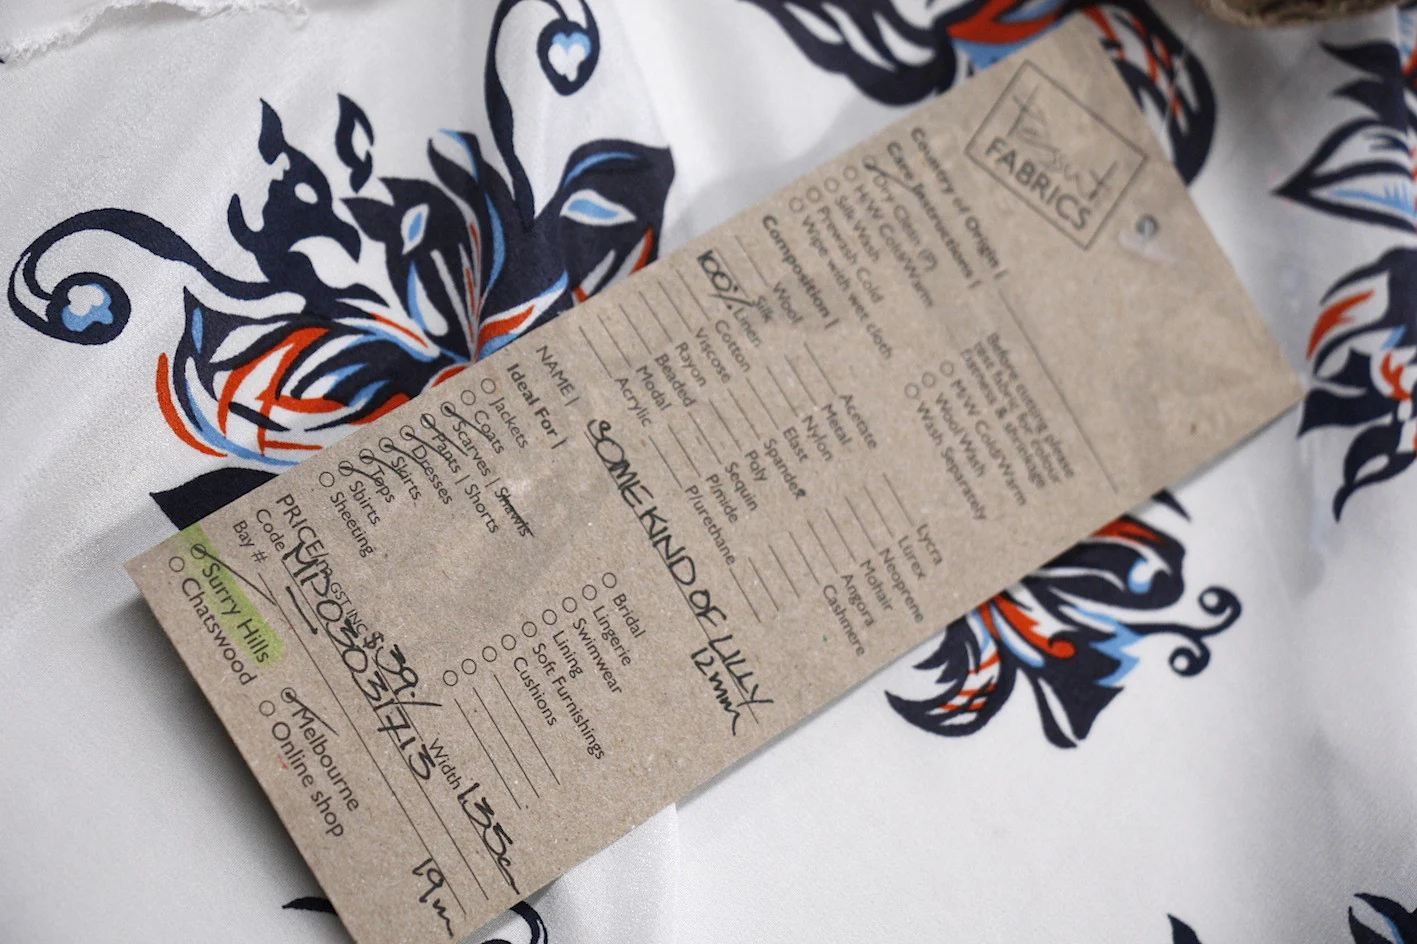 Tessuti
FABRICS
Country of Origin |
Care Instructions |
Dry Clean (P)
H/W Cold/Warm
Silk Wash
Prewash Cold
Wipe with wet cloth
Before cutting please
test fabric for colour
fastness & shrinkage
M/W Cold/Warm
Wool Wash
Wash Separately
Composition |
Wool
100% Silk
Linen
Cotton
Viscose
Rayon
Beaded
Modal
Acrylic
Acetate
Metal
Nylon
Elast
Spandex
Poly
Sequin
P/mide
P/urethane
Lycra
Lurex
Neoprene
Mohair
Angora
Cashmere
NAME | SOME KIND OF LILLY
12mm
Ideal For |
Jackets
Coats
Scarves | Shawls
Pants | Shorts
Dresses
Skirts
Tops
Shirts
Sheeting
Bridal
Lingerie
Swimwear
Lining
Soft Furnishings
Cushions
PRICE/m GST INC $ 39./ Width 135cm
Code MP03031713
Bay # 19m
Surry Hills
Chatswood
Melbourne
Online shop